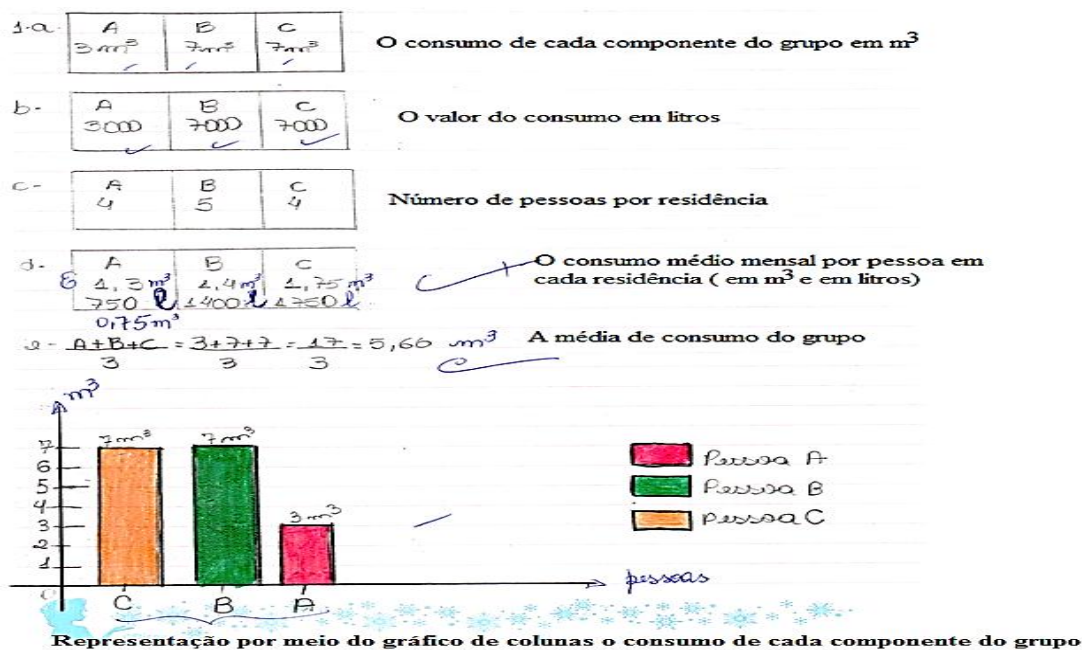 1.a. A B C
3m³ 7m³ 7m³ O consumo de cada componente do grupo em m³
b- A B C
3000 7000 7000 O valor do consumo em litros
c- A B C
4 5 4 Número de pessoas por residência
d- A B C
E 1,3 m³ 1,4 m³ 1,75 m³
750 l 1400 l 1750 l
0,75m³
O consumo médio mensal por pessoa em
cada residência ( em m³ e em litros)
e- A+B+C/3 = 3+7+7/3 = 17/3 = 5,66 m³ A média de consumo do grupo
m³
7m³ 7m³ 3m³
7
6
5
4
3
2
1
0
C B A
pessoas
Pessoa A
Pessoa B
Pessoa C
Representação por meio do gráfico de colunas o consumo de cada componente do grupo